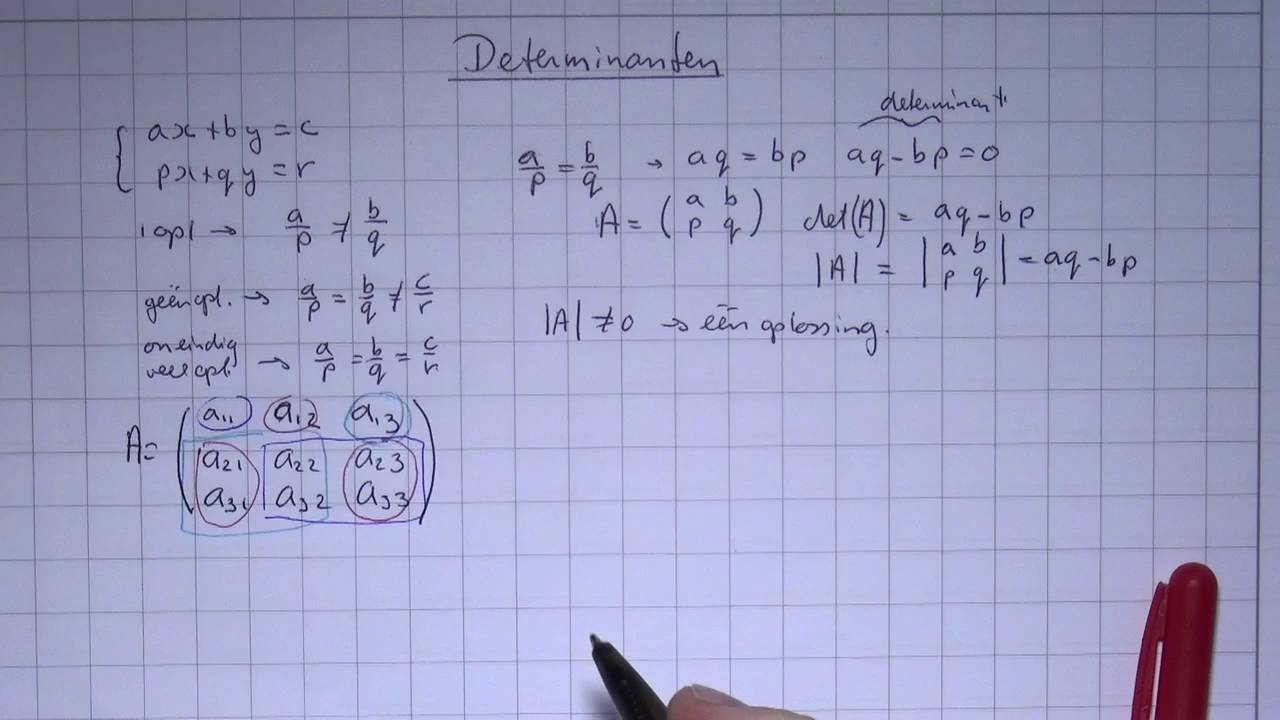 Determinanten
ax + by = c
px + qy = r
1 opl → a/p ≠ b/q
geén opl. → a/p = b/q ≠ c/r
oneindig
veel opl. → a/p = b/q = c/r
A = ( a11 a12 a13
a21 a22 a23
a31 a32 a33 )
determinant
a/p = b/q → aq = bp aq - bp = 0
A = ( a b
p q ) det(A) = aq - bp
|A| = | a b
p q | = aq - bp
|A| ≠ 0 → één oplossing.